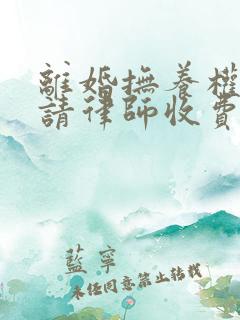 離婚撫養權
請律師收費
藍寧
未經同意禁止轉載